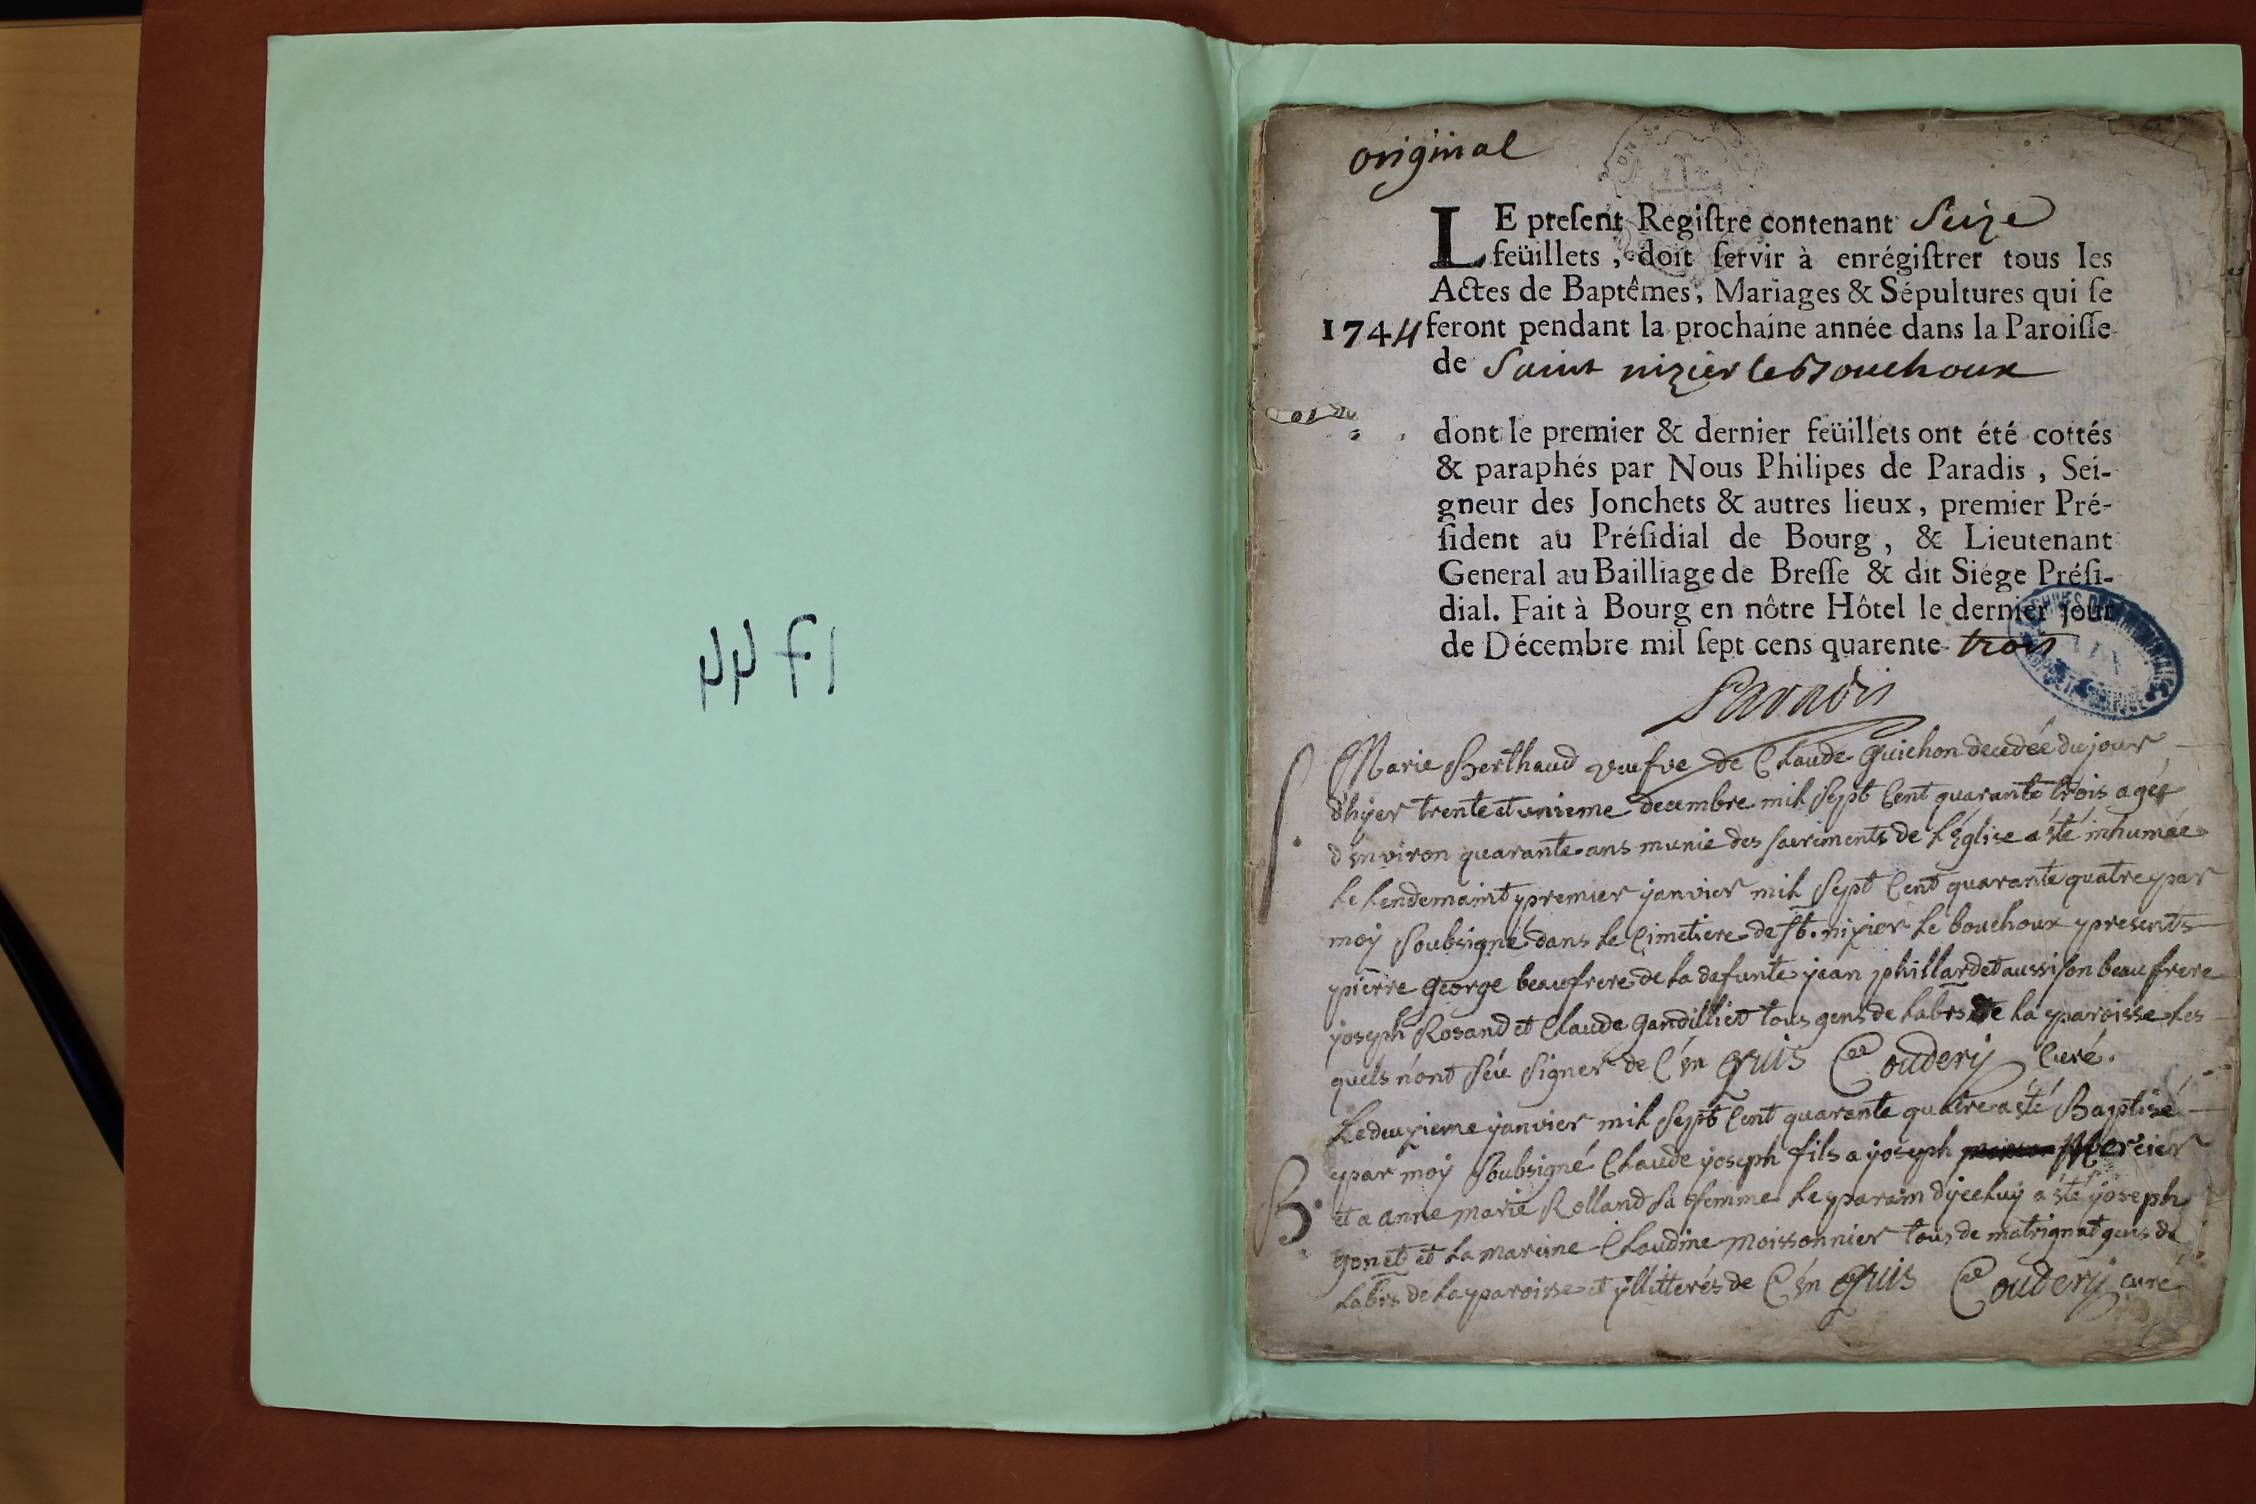 1744
original
LE preſent Regiſtre contenant Seize
feüillets, doit ſervir à enrégiſtrer tous les
Actes de Baptêmes, Mariages & Sépultures qui ſe
1744 feront pendant la prochaine année dans la Paroiſſe
de Saint nizier le Bouchoux
dont le premier & dernier feüillets ont été cottés
& paraphés par Nous Philipes de Paradis, Sei-
gneur des Jonchets & autres lieux, premier Pré-
ſident au Préſidial de Bourg, & Lieutenant
General au Bailliage de Breſſe & dit Siége Préſi-
dial. Fait à Bourg en nôtre Hôtel le dernier jour
de Décembre mil ſept cens quarente trois
Paradis
S. Marie Berthaud veufve de Claude Guichon decedée du jour
d'hyer trente et unieme decembre mil sept Cent quarante trois agée
d'environ quarante ans munie des sacrements de L'église a été inhumée
Le Lendemaint premier janvier mil sept Cent quarante quatre par
moy soubsigné dans Le Cimetiere de st. nizier Le bouchoux presents
pierre george beaufrere de La defunte jean philland et aussi son beaufrere
joseph Rosand et Claude Gandilliet tous gens de Labrs de La paroisse Les
quels n'ont séu signer de C'en quis Couderij Curé.
Le deuzieme janvier mil sept Cent quarante quatre a été Baptisé
par moy soubsigné Claude joseph fils a joseph Mercier
B. et a anne marie Rolland sa femme Le parain d'yceluy a été joseph
gonet et La marine Claudine moissonnier tous de matrignat gens de
Labrs de La paroisse et yllitterés de C'en quis Couderij curé